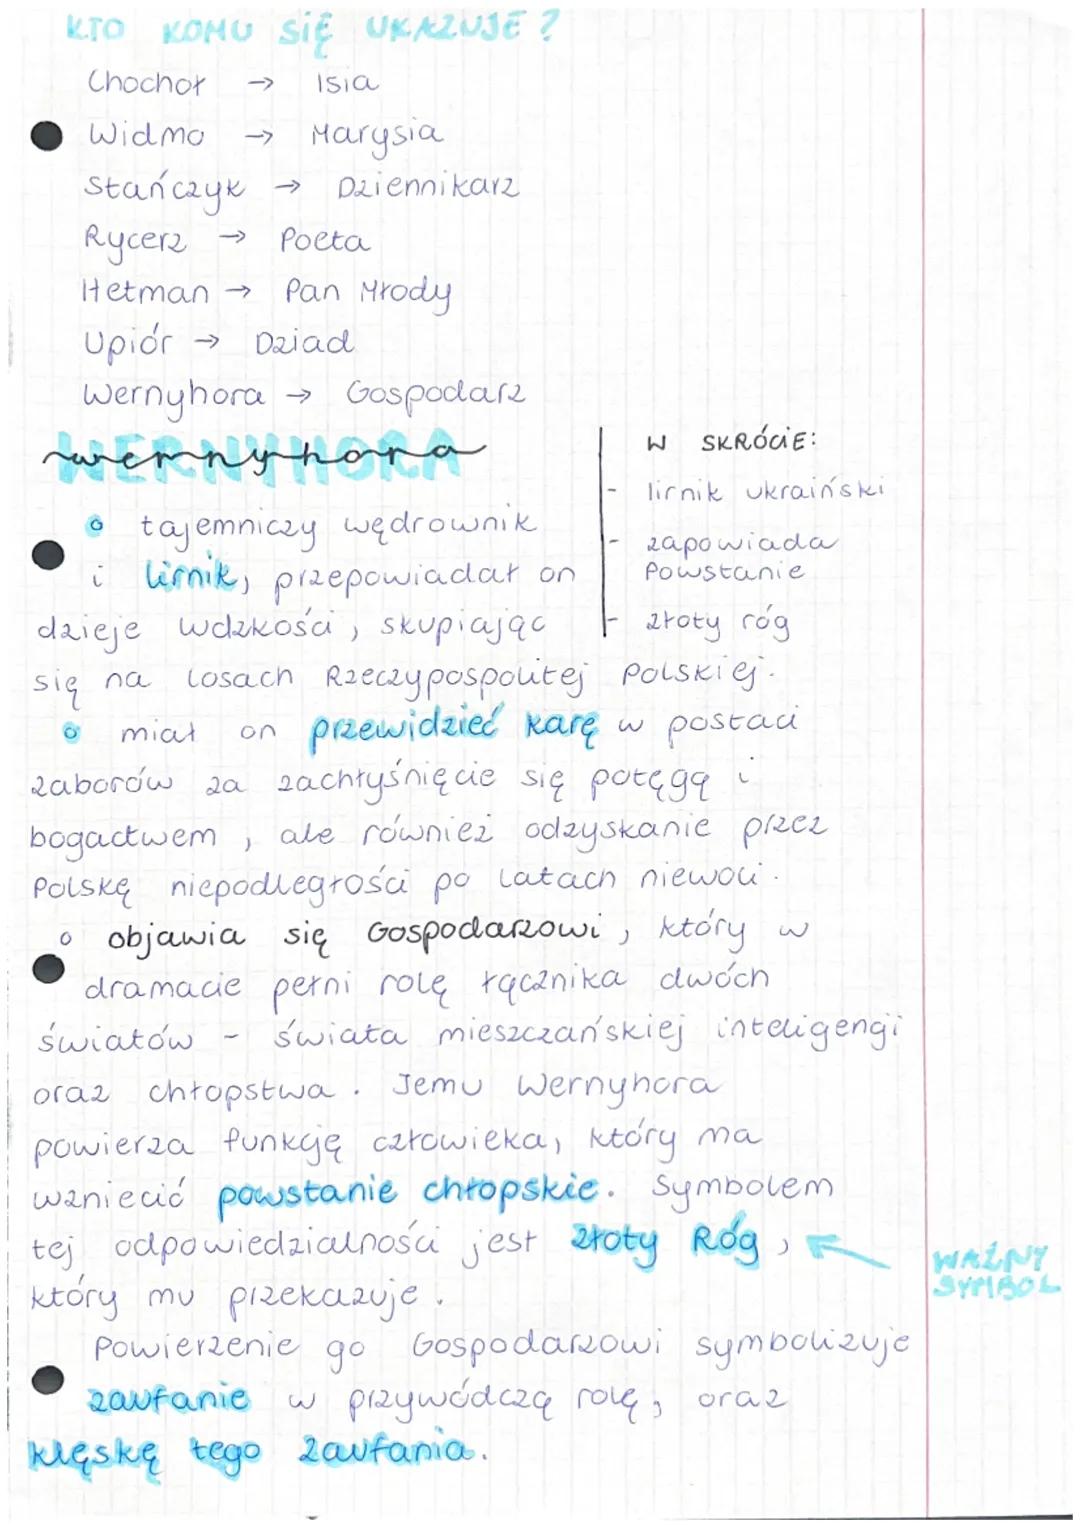 KTO KOMU SIĘ UKAZUJE?
Chochoł → Isia
Widmo → Marysia
Stańczyk → Dziennikarz
Rycerz → Poeta
Hetman → Pan Młody
Upiór → Dziad
Wernyhora → Gospodarz
WERNYHORA
wernyhora
W SKRÓCIE:
- lirnik ukraiński
- zapowiada
Powstanie
- złoty róg
o tajemniczy wędrownik
i lirnik, przepowiadał on
dzieje wdzkości, skupiając
się na losach Rzeczypospolitej Polskiej.
o miał on przewidzieć karę w postaci
zaborów za zachłyśnięcie się potęgą i
bogactwem, ale również odzyskanie przez
Polskę niepodległości po latach niewoli.
o objawia się Gospodarzowi, który w
dramacie pełni rolę łącznika dwóch
światów - świata mieszczańskiej inteligengi
oraz chłopstwa. Jemu Wernyhora
powierza funkcję człowieka, który ma
wzniecić powstanie chłopskie. Symbolem
tej odpowiedzialności jest złoty Róg, ←
który mu przekazuje.
WAŻNY
SYMBOL
Powierzenie go Gospodarzowi symbolizuje
zaufanie w przywódczą rolę, oraz
klęskę tego zaufania.